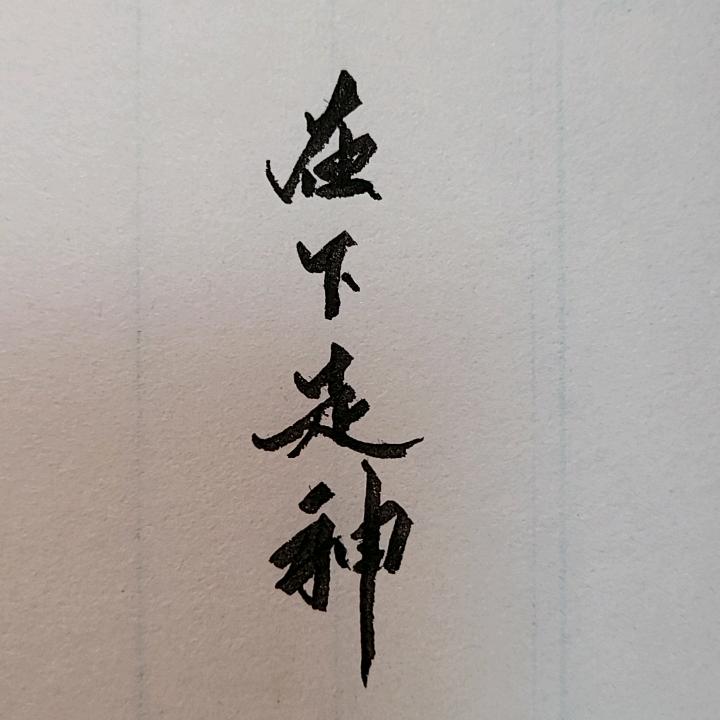 在下是神